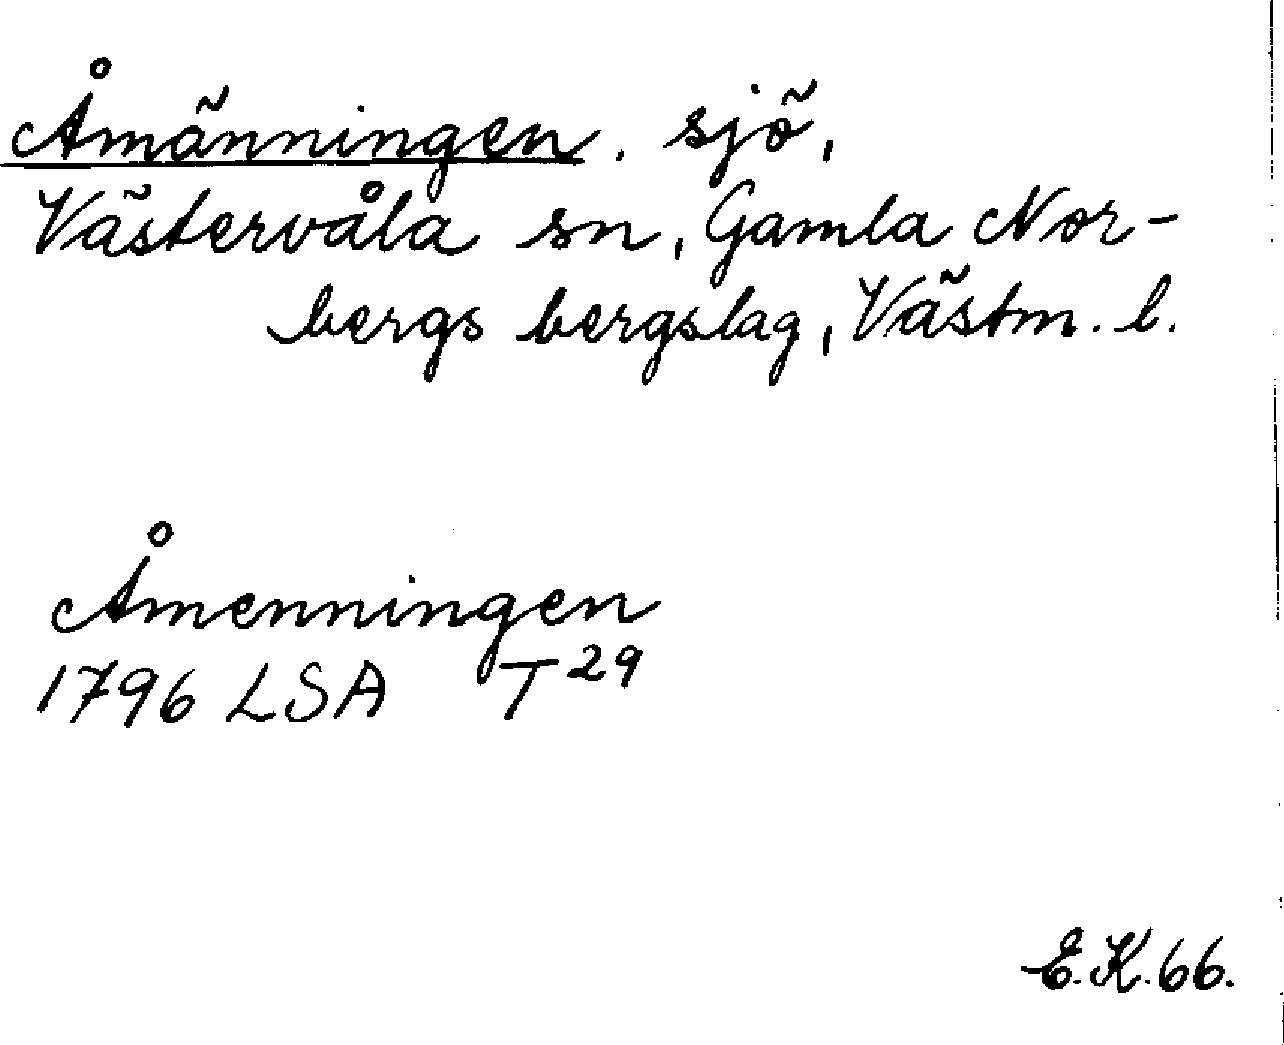 Åmänningen. sjö,
Västervåla sn, Gamla Nor-
bergs bergslag, Västm. l.
Åmenningen
1796 LSA T29
E.K.66.